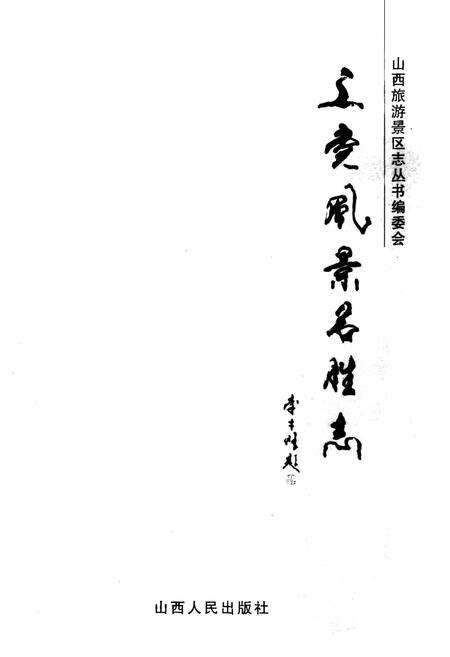 山西旅游景区志丛书编委会
上党風景名胜志
李才旺题
山西人民出版社